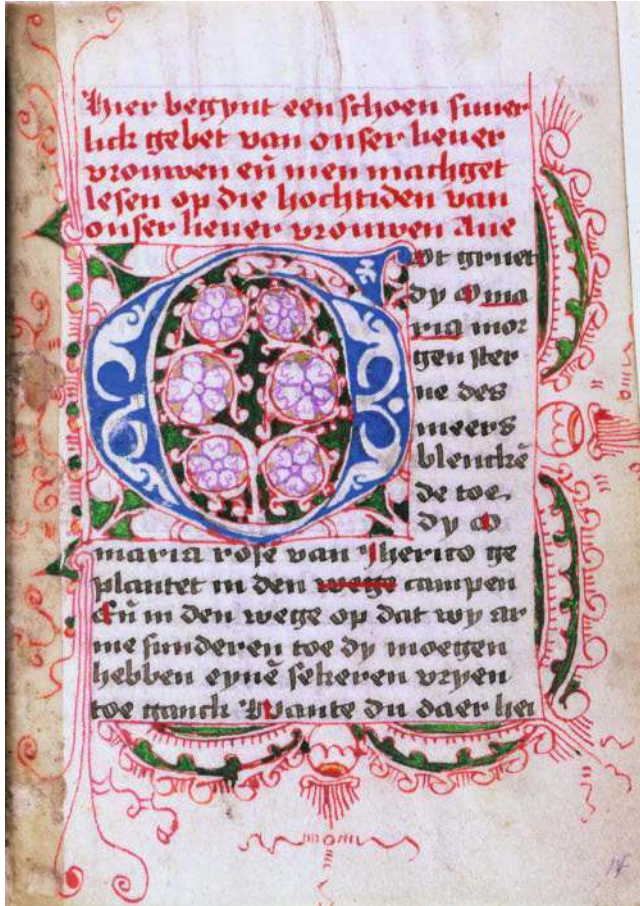 Hier begynt een schoen suuer
lick gebet van onser lieuer
vrouwen eñ men mach get
lesen op die hochtiden van
onser lieuer vrouwen Aue
Ot gruet
dy O ma
ria mor
gen ster
ne des
meers
blenckē
de toe
dy O
maria rose van Jherico ge
plantet in den wege campen
Eñ in den wege op dat wy ar
me sunderen toe dy moegen
hebben eynē sekeren vryen
toe ganck Wante du daer hei